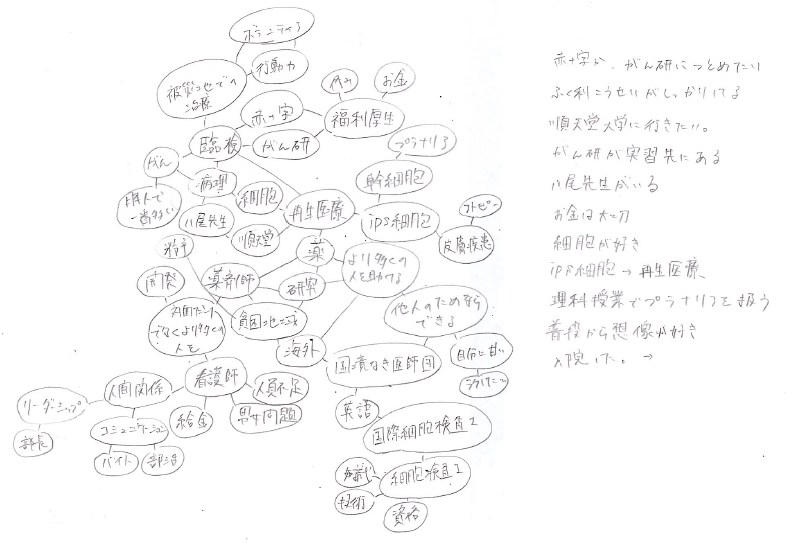 ボランティア
行動力
被災地での
治療
休み
お金
赤十字
福利厚生
臨検
がん研
プラナリア
がん
病理
細胞
幹細胞
日本人で
一番多い
八尾先生
順天堂
再生医療
iPS細胞
アトピー
皮膚疾患
薬
より多くの
人を助ける
開発
薬剤師
研究
対面だけ
でなくより多くの
人を
貧困地域
他人のためなら
できる
海外
国境なき医師団
自分に甘い
人間関係
看護師
人員不足
リーダーシップ
部長
コミュニケーション
給金
男女問題
英語
バイト
部活
国際細胞検査士
細胞検査士
知識
技術
資格
赤十字か、がん研につとめたい
ふく利こうせいがしっかりしてる
順天堂大学に行きたい。
がん研が実習先にある
八尾先生がいる
お金は大切
細胞が好き
iPS細胞→再生医療
理科授業でプラナリアを扱う
普段から想像が好き
入院した。→